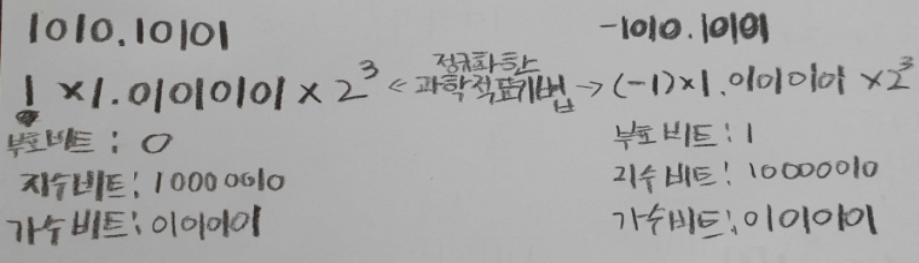 1010.10101
-1010.10101
1 ×1.01010101 × 2³ ← 정규화한 과학적표기법 → (-1)×1.01010101 ×2³
부호비트 : 0
부호 비트 : 1
지수비트 : 10000010
지수 비트 : 10000010
가수비트 : 01010101
가수비트 : 01010101